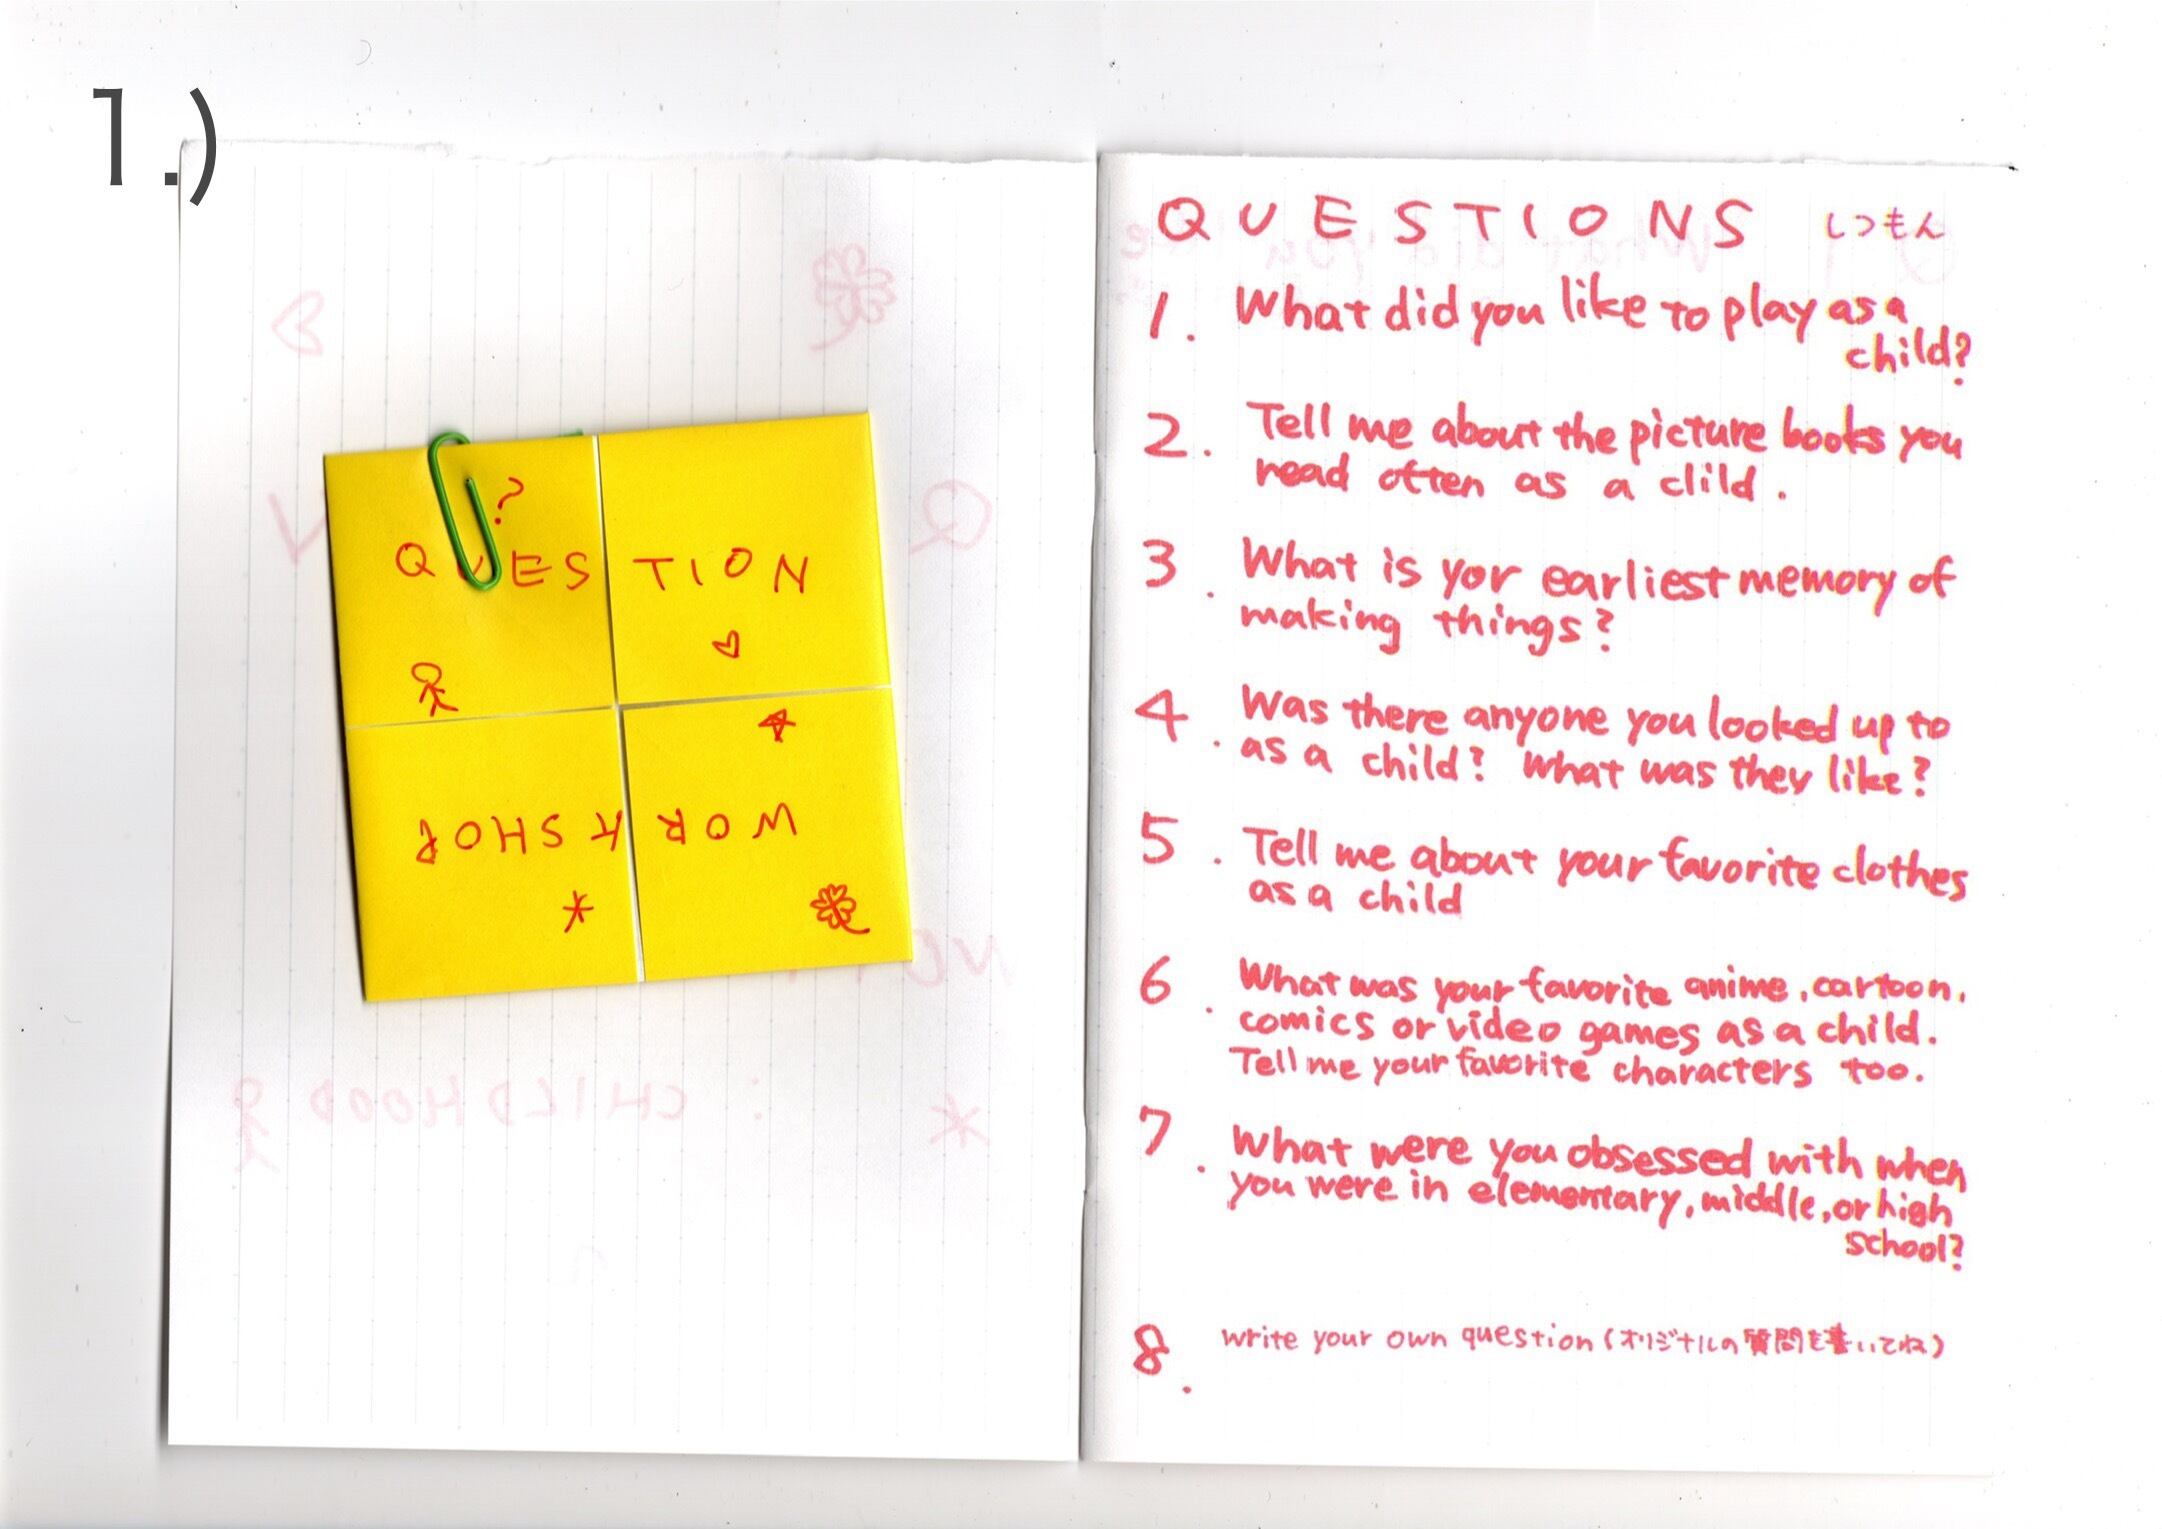 1.)
?
QUESTION
WORKSHOP
QUESTIONS しつもん
1. What did you like to play as a
child?
2. Tell me about the picture books you
read often as a clild.
3. What is yor earliest memory of
making things?
4. Was there anyone you looked up to
as a child? What was they like?
5. Tell me about your favorite clothes
as a child
6. What was your favorite anime, cartoon,
comics or video games as a child.
Tell me your favorite characters too.
7. What were you obsessed with when
you were in elementary, middle, or high
school?
8. write your own question (オリジナルの質問を書いてね)
CHILDHOOD